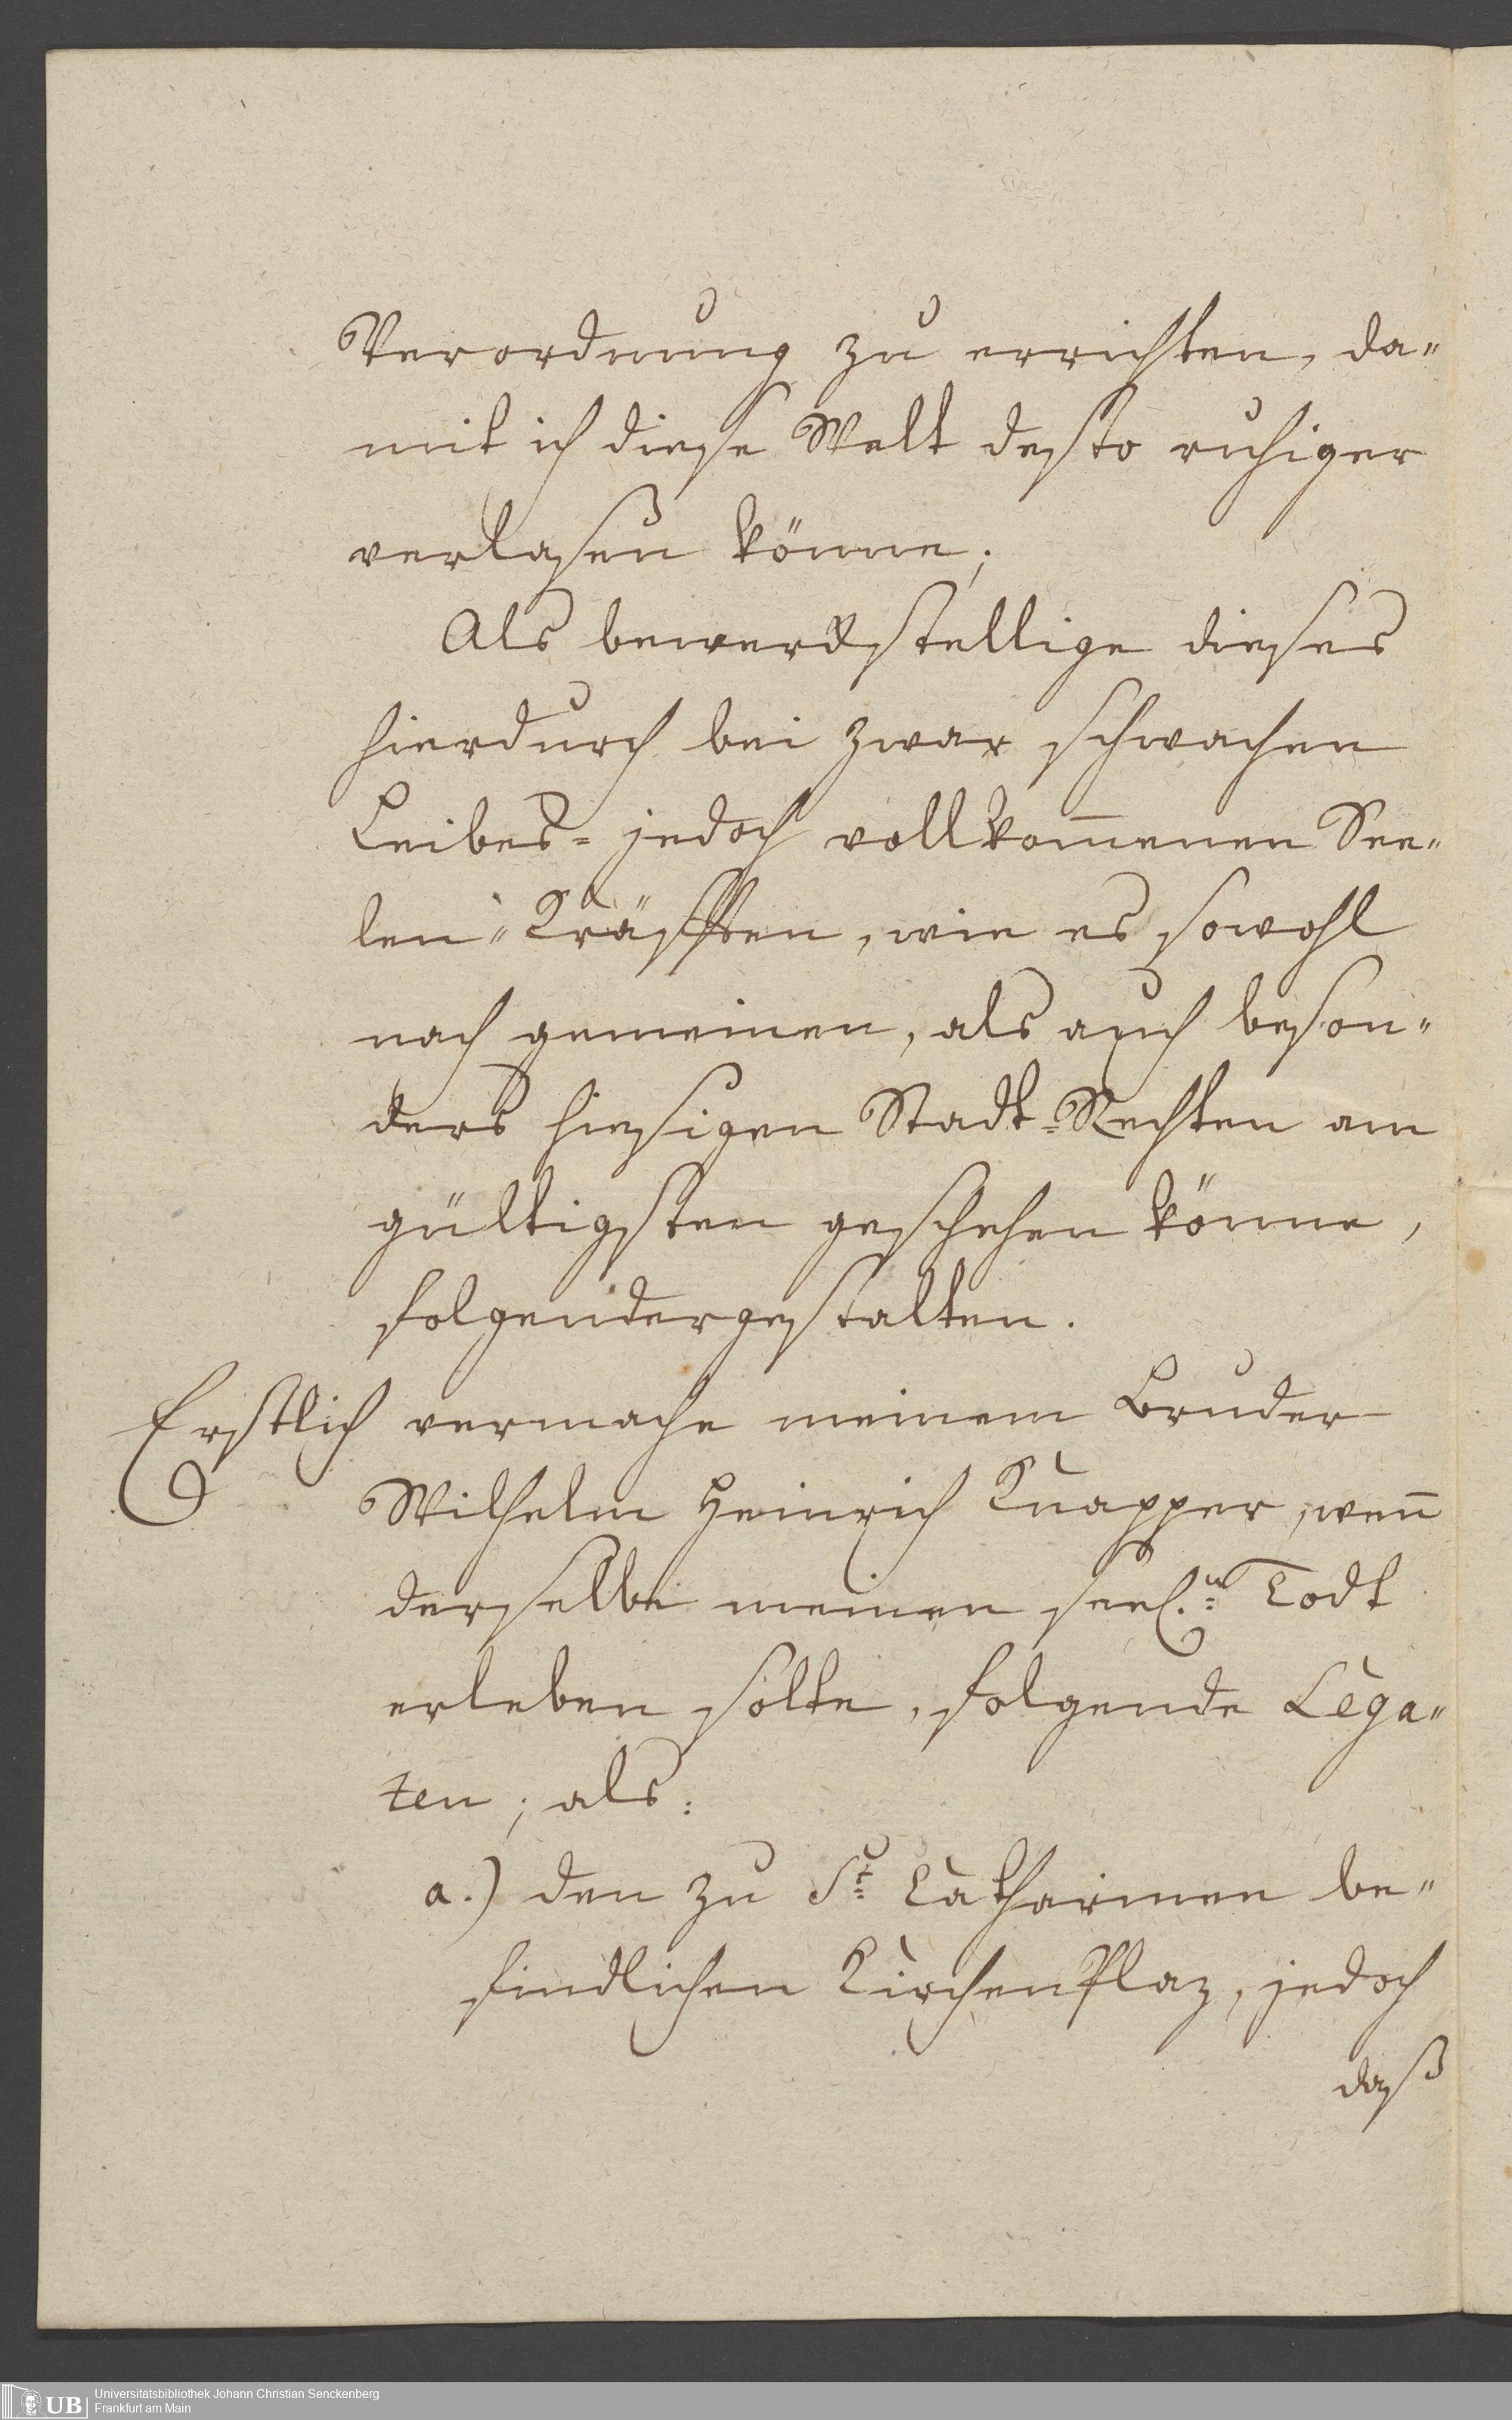 Verordnung zu errichten, da„
mit ich diese Welt desto ruhiger
verlasen könne;
Als bewerckstellige dieses
hierdurch bei zwar schwachen
Leibes= jedoch vollkom̄enen See„
len„Kräfften, wie es sowohl
nach gemeinen, als auch beson„
ders hiesigen Stadt=Rechten am
gültigsten geschehen könne,
folgendergestalten.
Erstlich vermache meinem Bruder
Wilhelm Heinrich Knapper, wen̄
derselbe meinen seel.n Todt
erleben solte, folgende Lega„
ten; als:
a.) den zu St. Catharinen be„
findlichen KirchenPlaz, jedoch
daß
Universitätsbibliothek Johann Christian Senckenberg
Frankfurt am Main
UB